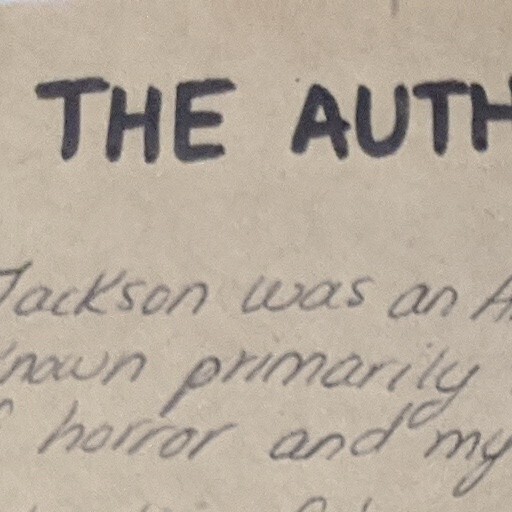 THE AUTH
Jackson was an A
known primarily
horror and my